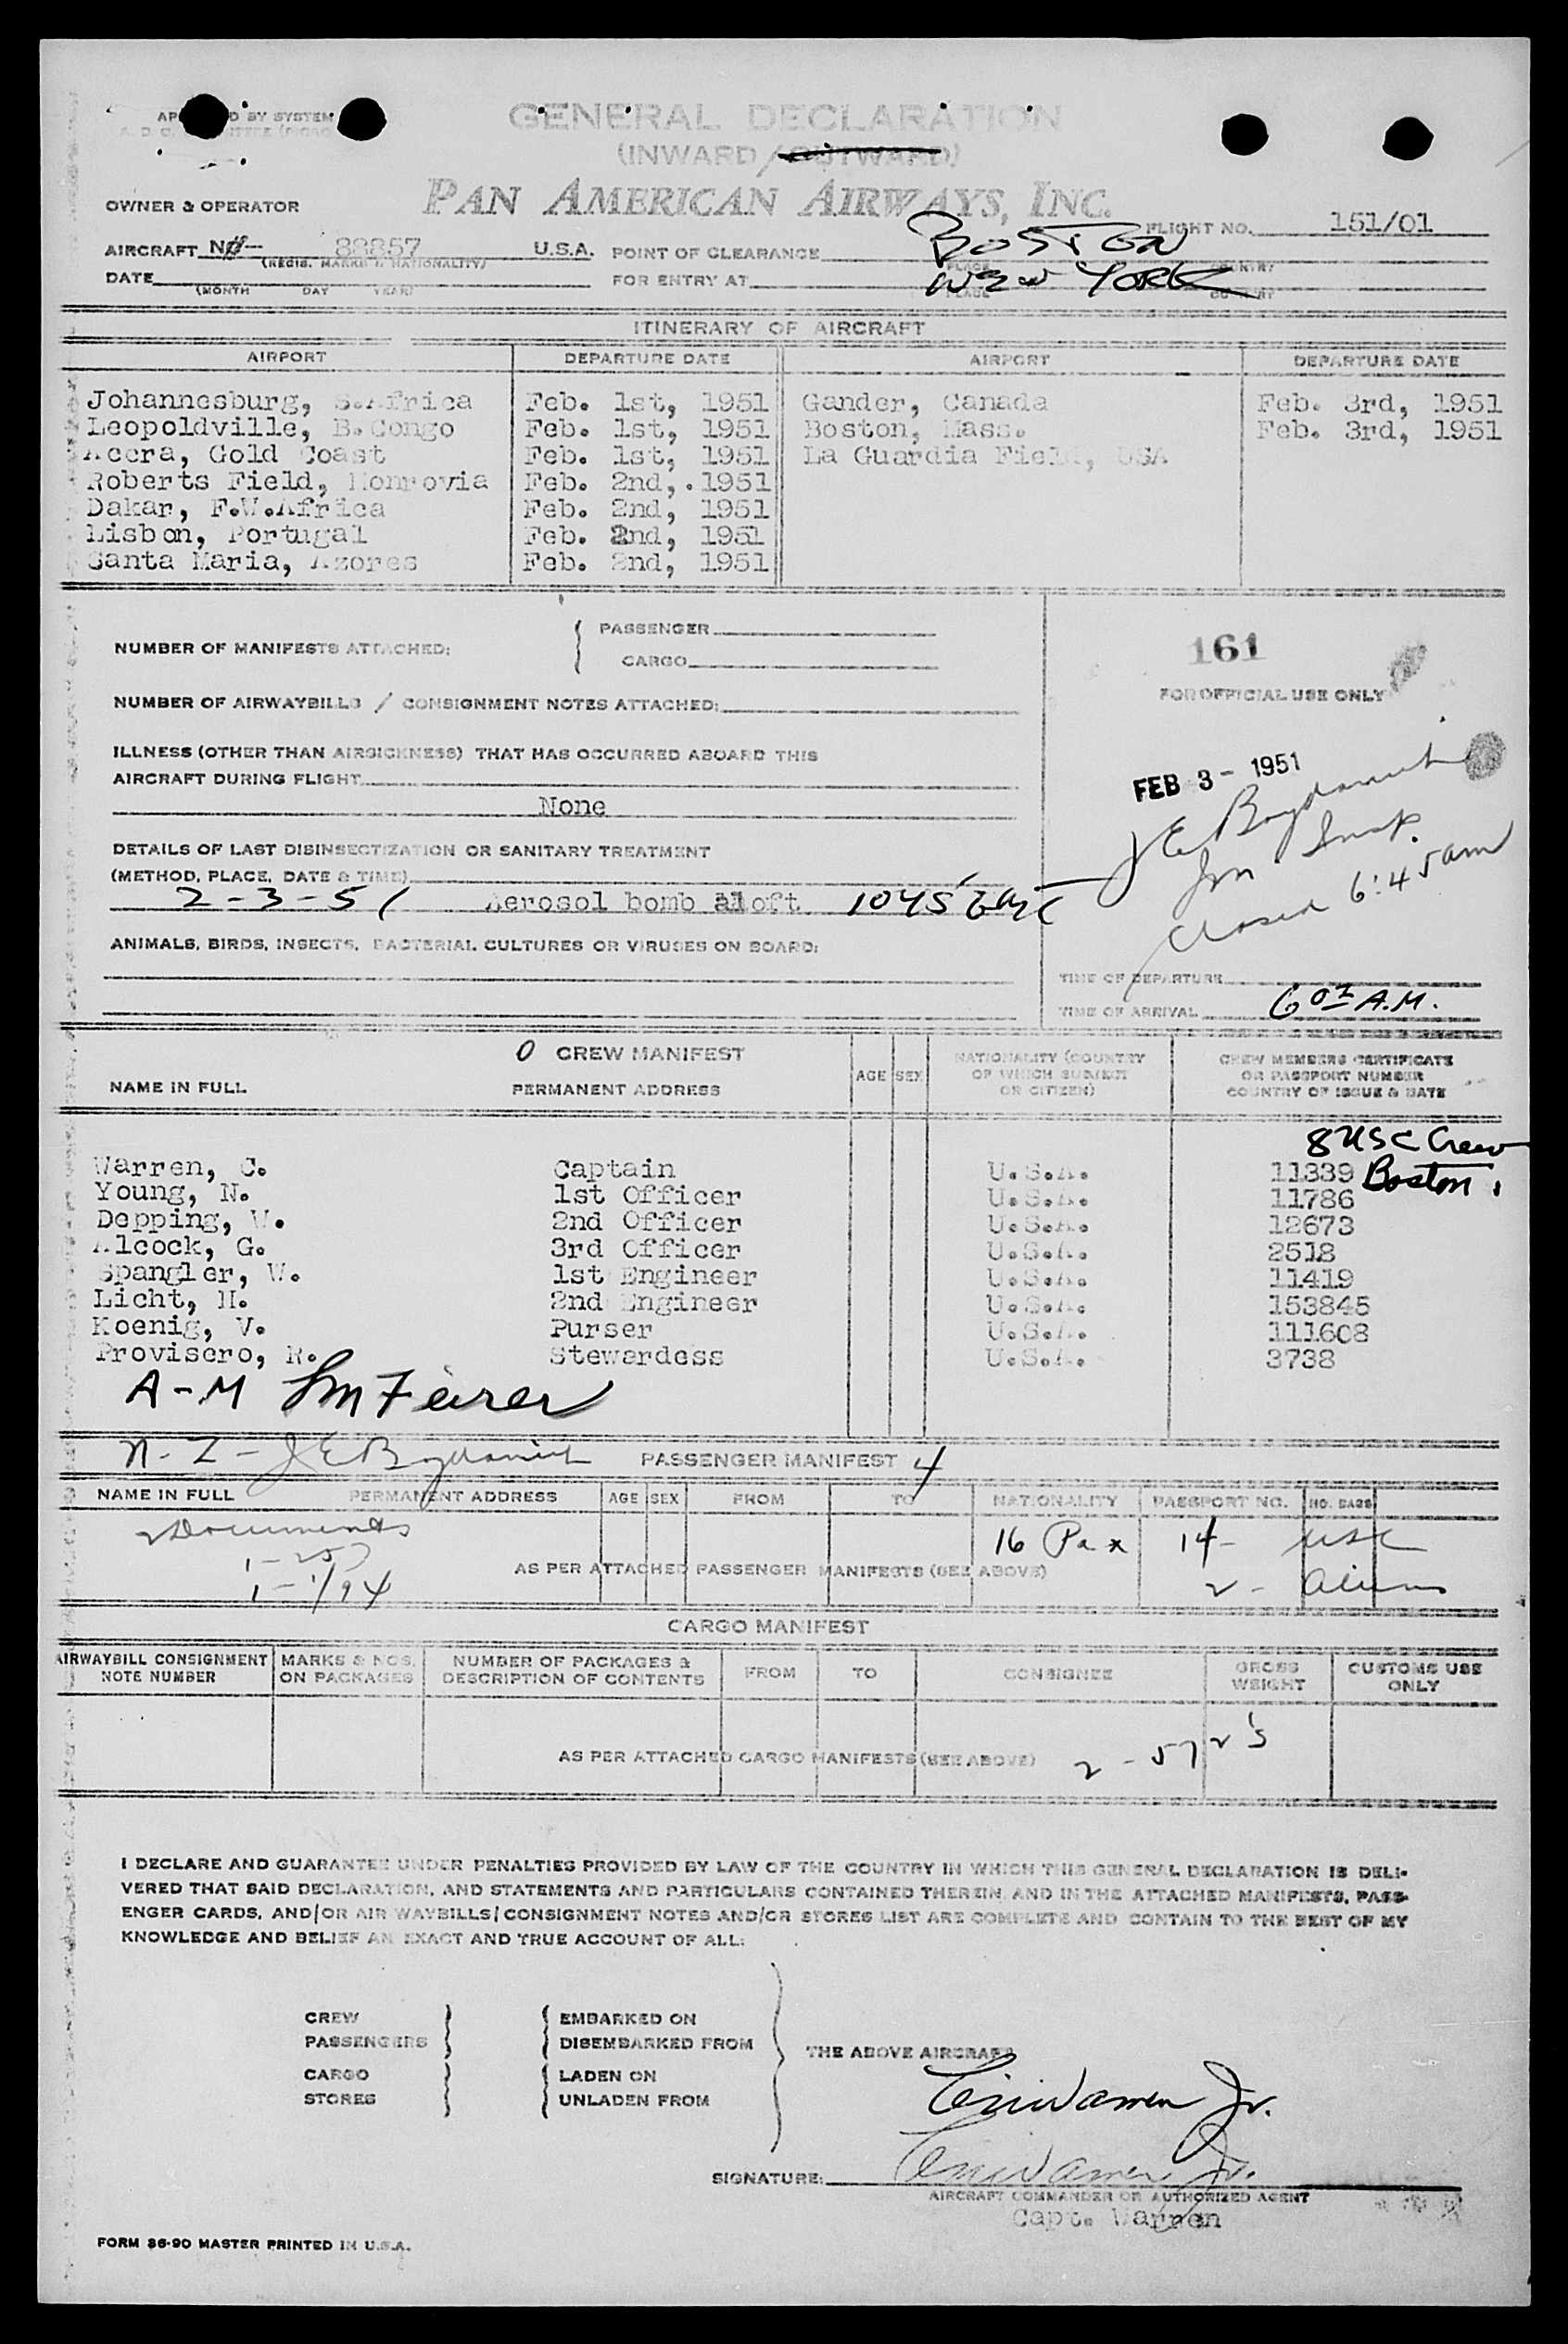 BY SYSTEM
GENERAL DECLARATION
(INWARD / OUTWARD)
PAN AMERICAN AIRWAYS, INC.
OWNER & OPERATOR
FLIGHT NO. 151/01
AIRCRAFT 88857 U.S.A. POINT OF CLEARANCE BOSTON
(REGIS. MARKS & NATIONALITY) PLACE COUNTRY
DATE FOR ENTRY AT NEW YORK
(MONTH DAY YEAR) PLACE COUNTRY
ITINERARY OF AIRCRAFT
AIRPORT DEPARTURE DATE AIRPORT DEPARTURE DATE
Johannesburg, S.Africa Feb. 1st, 1951 Gander, Canada Feb. 3rd, 1951
Leopoldville, B.Congo Feb. 1st, 1951 Boston, Mass. Feb. 3rd, 1951
Accra, Gold Coast Feb. 1st, 1951 La Guardia Field, USA
Roberts Field, Monrovia Feb. 2nd, 1951
Dakar, F.W.Africa Feb. 2nd, 1951
Lisbon, Portugal Feb. 2nd, 1951
Santa Maria, Azores Feb. 2nd, 1951
NUMBER OF MANIFESTS ATTACHED: PASSENGER
CARGO
161
FOR OFFICIAL USE ONLY
NUMBER OF AIRWAYBILLS / CONSIGNMENT NOTES ATTACHED:
ILLNESS (OTHER THAN AIRSICKNESS) THAT HAS OCCURRED ABOARD THIS
AIRCRAFT DURING FLIGHT
None
FEB 3 - 1951
Closed 6:45 am
DETAILS OF LAST DISINSECTIZATION OR SANITARY TREATMENT
(METHOD, PLACE, DATE & TIME)
2-3-51 Aerosol bomb aloft 1045
ANIMALS, BIRDS, INSECTS, BACTERIAL CULTURES OR VIRUSES ON BOARD:
TIME OF DEPARTURE
TIME OF ARRIVAL A.M.
0 CREW MANIFEST
NAME IN FULL PERMANENT ADDRESS AGE SEX NATIONALITY (COUNTRY OF WHICH SUBJECT OR CITIZEN) CREW MEMBERS CERTIFICATE OR PASSPORT NUMBER COUNTRY OF ISSUE & DATE
8 USC Crew
Boston
Warren, C. Captain U.S.A. 11339
Young, N. 1st Officer U.S.A. 11786
Depping, W. 2nd Officer U.S.A. 12673
Alcock, G. 3rd Officer U.S.A. 2518
Spangler, W. 1st Engineer U.S.A. 11419
Licht, H. 2nd Engineer U.S.A. 153845
Koenig, V. Purser U.S.A. 111608
Provisero, R. Stewardess U.S.A. 3738
A-M
N-Z
PASSENGER MANIFEST 4
NAME IN FULL PERMANENT ADDRESS AGE SEX FROM TO NATIONALITY PASSPORT NO. NO. BAGS
2 Documents 16 Pax 14- USC
AS PER ATTACHED PASSENGER MANIFESTS (SEE ABOVE) 2- Aliens
CARGO MANIFEST
AIRWAYBILL CONSIGNMENT NOTE NUMBER MARKS & NOS. ON PACKAGES NUMBER OF PACKAGES & DESCRIPTION OF CONTENTS FROM TO CONSIGNEE GROSS WEIGHT CUSTOMS USE ONLY
AS PER ATTACHED CARGO MANIFESTS (SEE ABOVE)
I DECLARE AND GUARANTEE UNDER PENALTIES PROVIDED BY LAW OF THE COUNTRY IN WHICH THIS GENERAL DECLARATION IS DELI-
VERED THAT SAID DECLARATION, AND STATEMENTS AND PARTICULARS CONTAINED THEREIN, AND IN THE ATTACHED MANIFESTS, PASS-
ENGER CARDS, AND/OR AIR WAYBILLS/CONSIGNMENT NOTES AND/OR STORES LIST ARE COMPLETE AND CONTAIN TO THE BEST OF MY
KNOWLEDGE AND BELIEF AN EXACT AND TRUE ACCOUNT OF ALL:
CREW EMBARKED ON
PASSENGERS DISEMBARKED FROM
THE ABOVE AIRCRAFT
CARGO LADEN ON
STORES UNLADEN FROM
Warren Jr.
SIGNATURE: Warren Jr.
AIRCRAFT COMMANDER OR AUTHORIZED AGENT
Capt. Warren
FORM 36-90 MASTER PRINTED IN U.S.A.